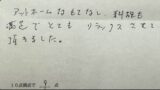 アットホームなおもてなし、お料理も
満足でとても リラックスさせて
頂きました。
10点満点で 9 点